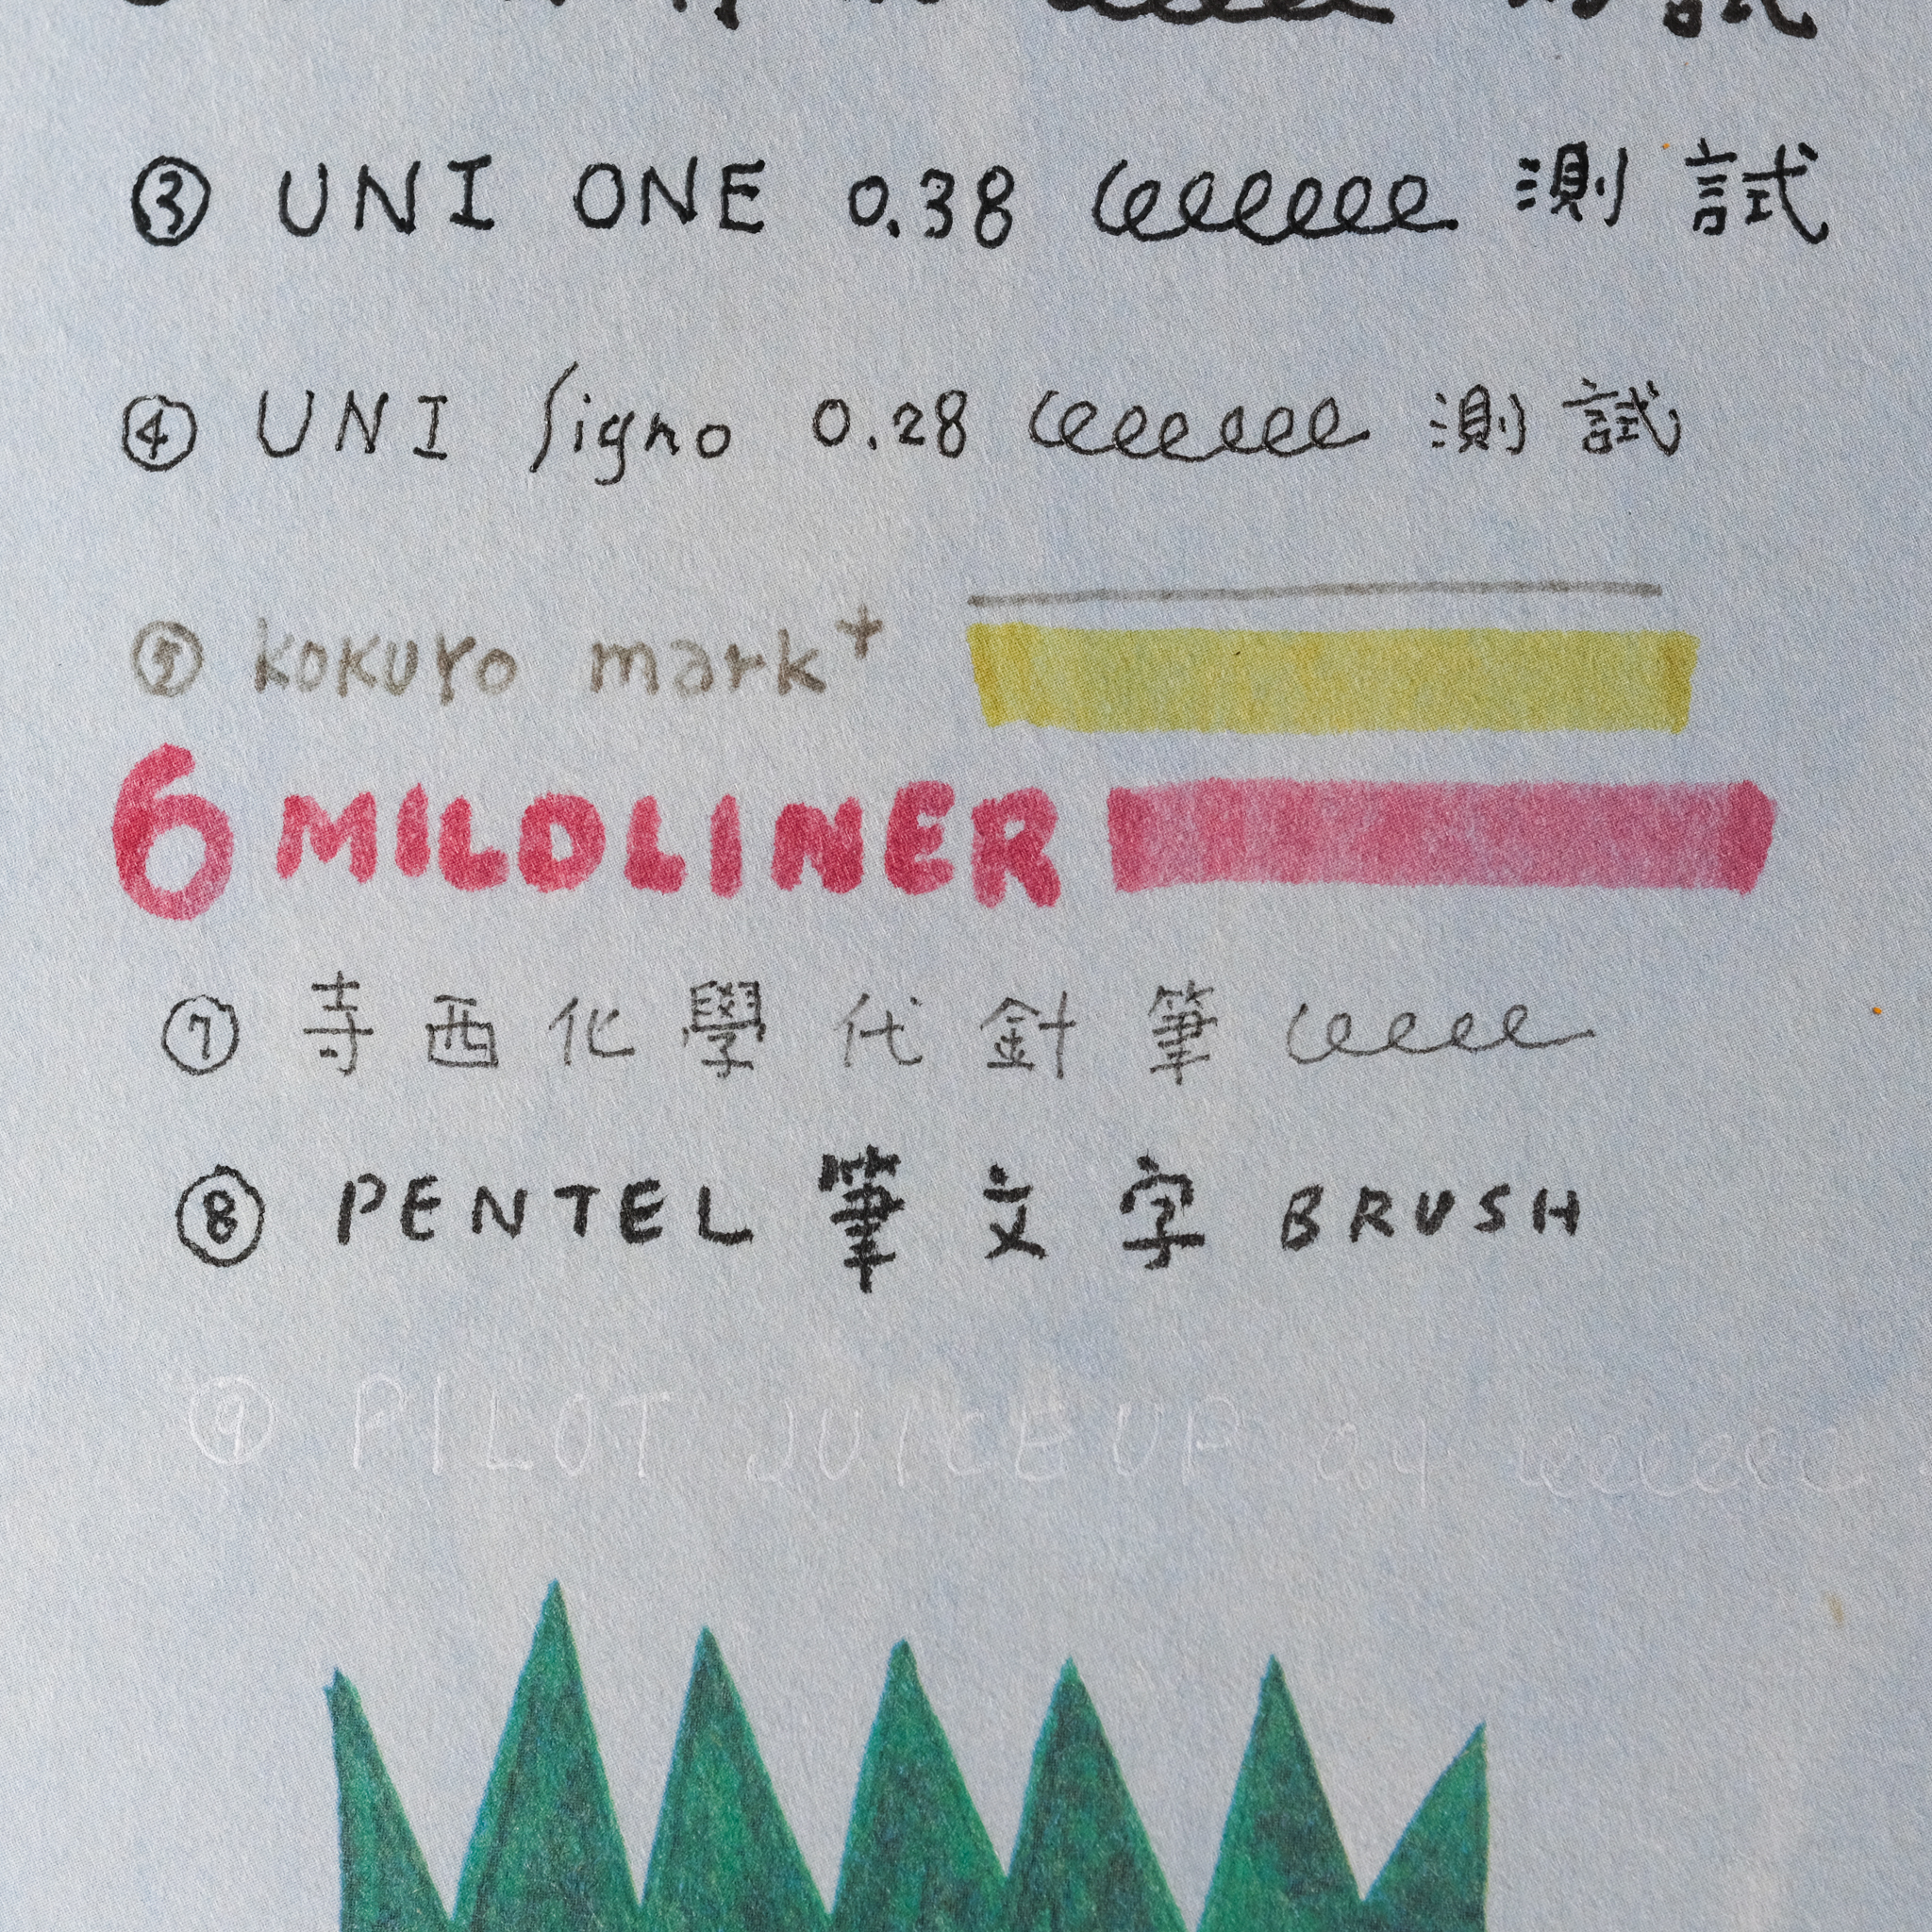 試
③ UNI ONE 0.38 測試
④ UNI Signo 0.28 測試
⑤ KOKUYO mark+
6 MILDLINER
⑦ 寺西化學代針筆
⑧ PENTEL 筆文字 BRUSH
⑨ PILOT JUICE UP 0.4